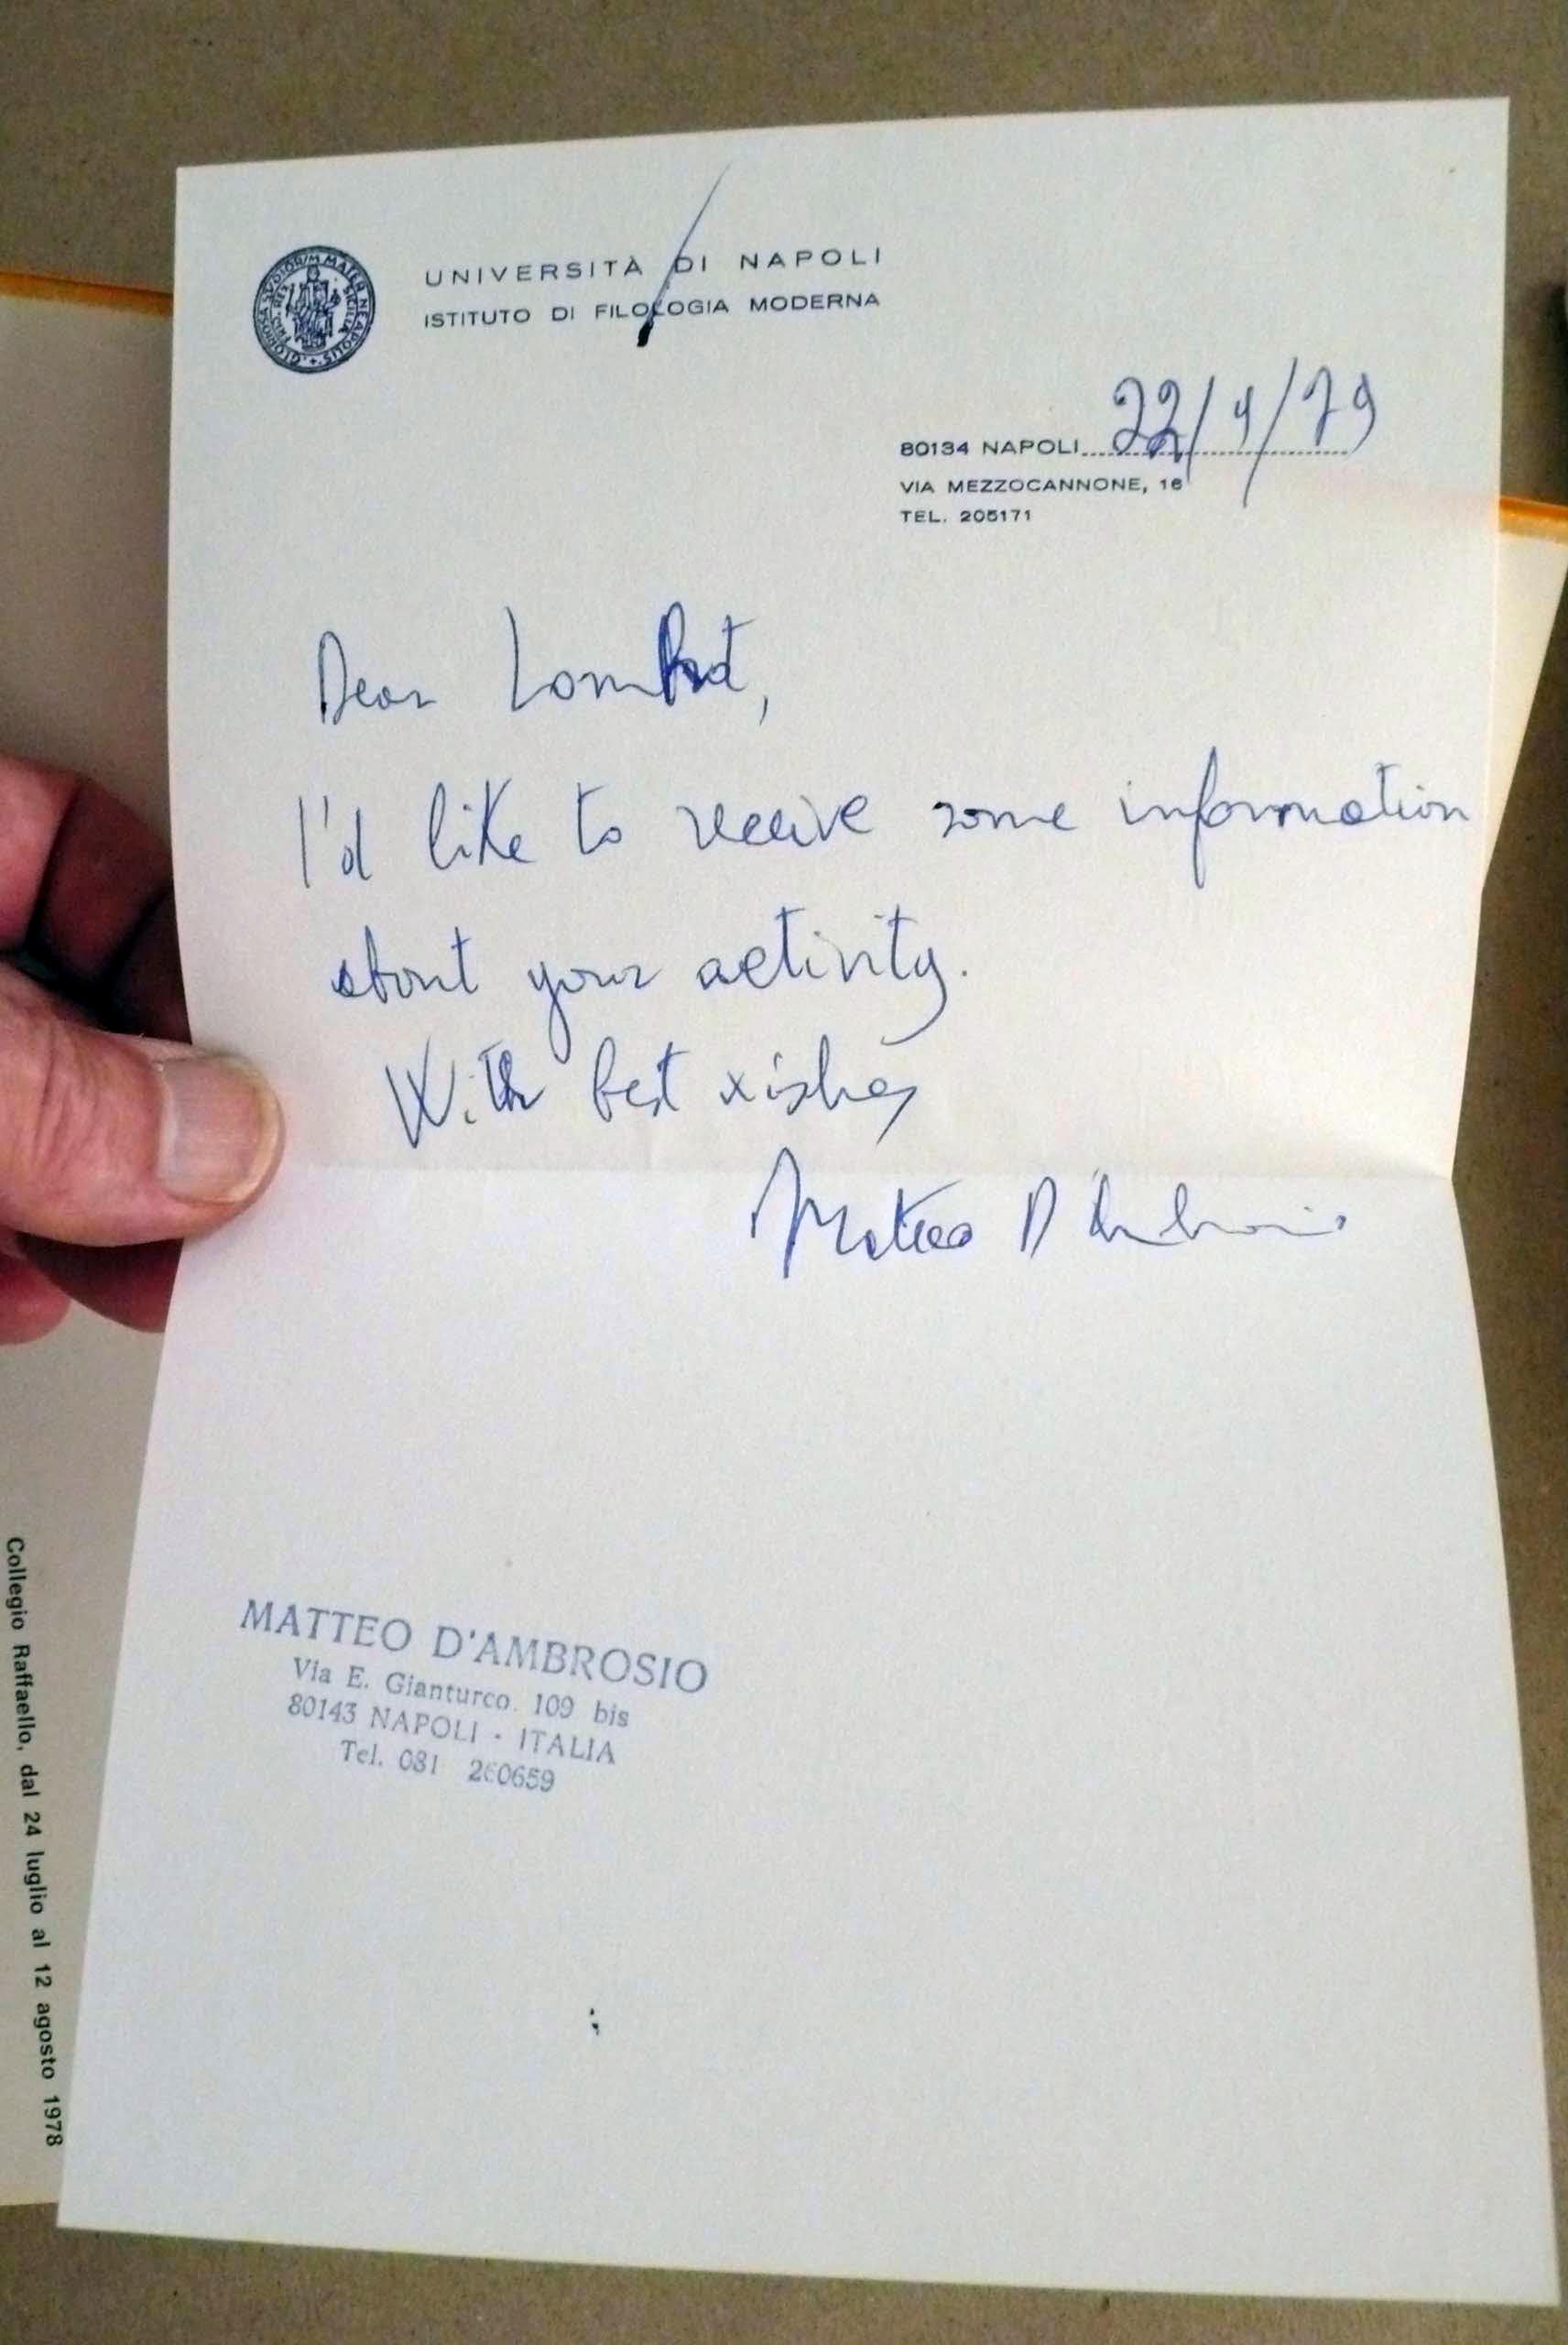 UNIVERSITÀ DI NAPOLI
ISTITUTO DI FILOLOGIA MODERNA
80134 NAPOLI 22/4/79
VIA MEZZOCANNONE, 16
TEL. 205171
Dear
I'd like to receive some information
about your activity.
With best wishes
Matteo D'Ambrosio
MATTEO D'AMBROSIO
Via E. Gianturco. 109 bis
80143 NAPOLI - ITALIA
Tel. 081 260659
Collegio Raffaello, dal 24 luglio al 12 agosto 1978